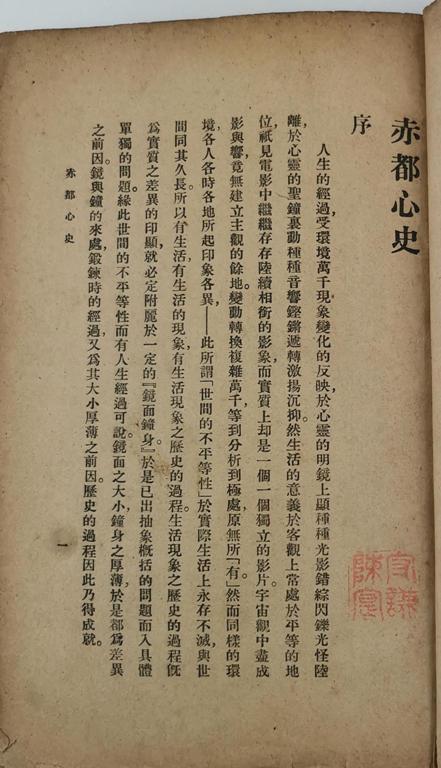 赤都心史
序
人生的經過，受環境萬千現象變化的反映，於心靈的明鏡上顯種種光影，錯綜閃鑠，光怪陸
離，於心靈的聖鐘裏動種種音響，鏗鏘遞轉，激揚沉抑。然生活的意義於客觀上常處於平等的地
位，祇見電影中繼繼存存陸續相銜的影象，而實質上却是一個一個獨立的影片。宇宙觀中盡成
影與響，竟無建立主觀的餘地。變動轉換複雜萬千，等到分析到極處，原無所「有」。然而同樣的環
境，各人各時各地所起印象各異——此所謂「世間的不平等性」於實際生活上永存不滅，與世
間同其久長。所以有生活，有生活的現象，有生活現象之歷史的過程。生活現象之歷史的過程，旣
爲實質之差異的印顯，就必定附麗於一定的「鏡面鐘身」。於是已出抽象概括的問題而入具體
單獨的問題。緣此世間的不平等性而有人生經過可說。鏡面之大小，鐘身之厚薄，於是都爲差異
之前因。鏡與鐘的來處，鍛鍊時的經過，又爲其大小厚薄之前因。歷史的過程因此乃得成就。
赤都心史
一
守謙